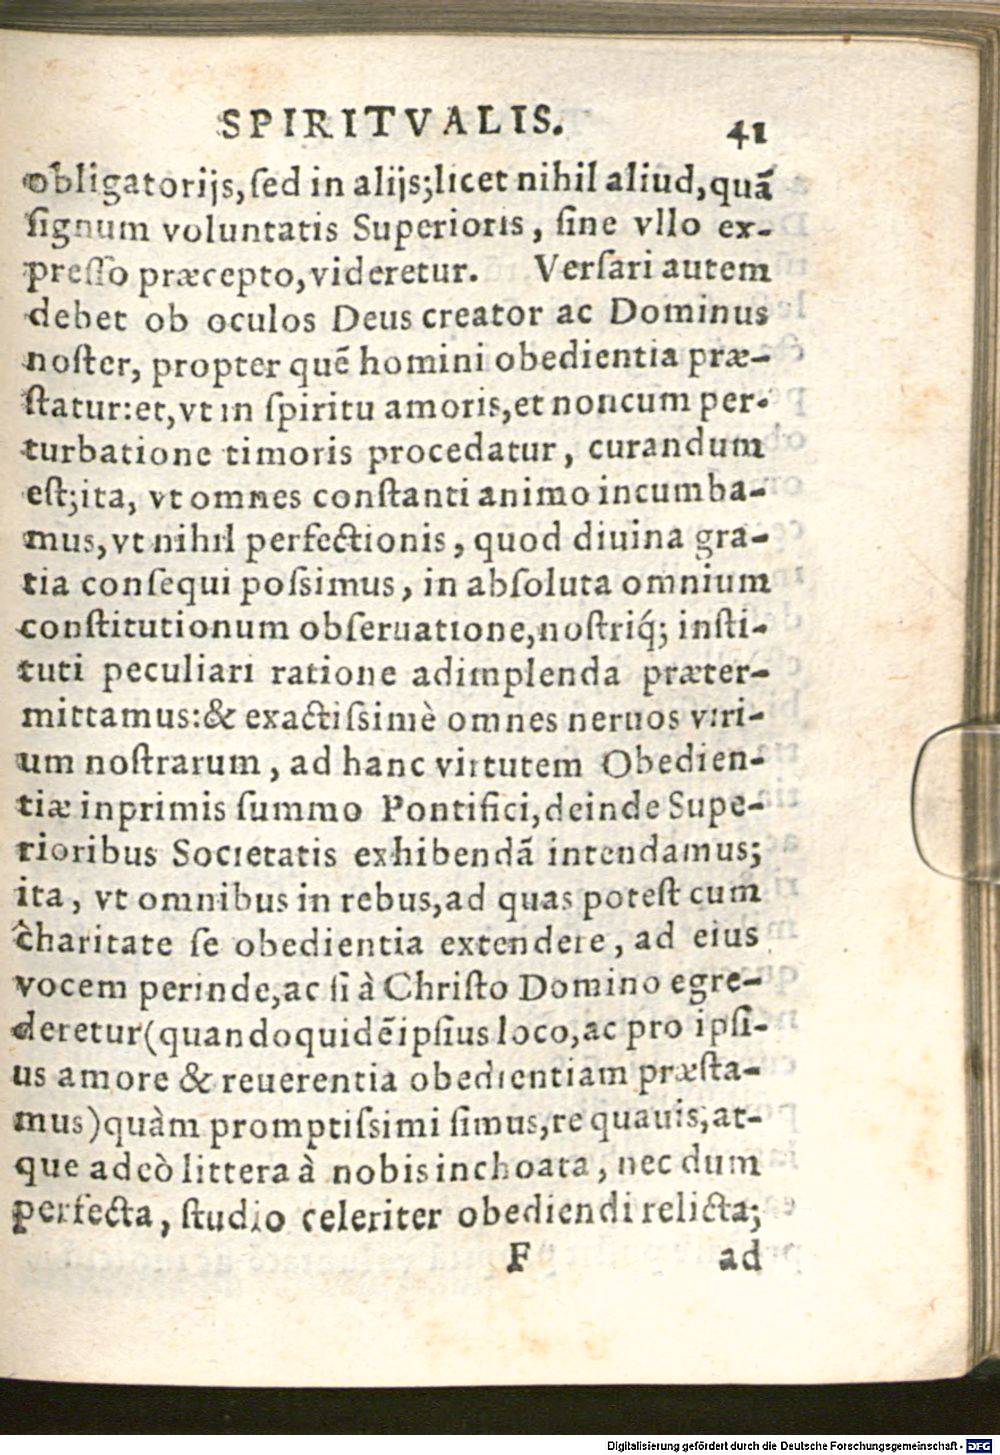 SPIRITVALIS. 41
obligatorijs, ſed in alijs; licet nihil aliud, quã
ſignum voluntatis Superioris, ſine vllo ex-
preſſo præcepto, videretur. Verſari autem
debet ob oculos Deus creator ac Dominus
noſter, propter quẽ homini obedientia præ-
ſtatur: et, vt in ſpiritu amoris, et non cum per-
turbatione timoris procedatur, curandum
eſt; ita, vt omnes conſtanti animo incumba-
mus, vt nihil perfectionis, quod diuina gra-
tia conſequi poſsimus, in abſoluta omnium
conſtitutionum obſeruatione, noſtriq́; inſti-
tuti peculiari ratione adimplenda præter-
mittamus: & exactiſsimè omnes neruos viri-
um noſtrarum, ad hanc virtutem Obedien-
tiæ inprimis ſummo Pontifici, deinde Supe-
rioribus Societatis exhibendã intendamus;
ita, vt omnibus in rebus, ad quas poteſt cum
charitate ſe obedientia extendere, ad eius
vocem perinde, ac ſi à Chriſto Domino egre-
deretur (quandoquidẽ ipſius loco, ac pro ipſi-
us amore & reuerentia obedientiam præſta-
mus) quàm promptiſsimi ſimus, re quauis, at-
que adeò littera à nobis inchoata, nec dum
perfecta, ſtudio celeriter obediendi relicta;
F ad
Digitalisierung gefördert durch die Deutsche Forschungsgemeinschaft - DFG